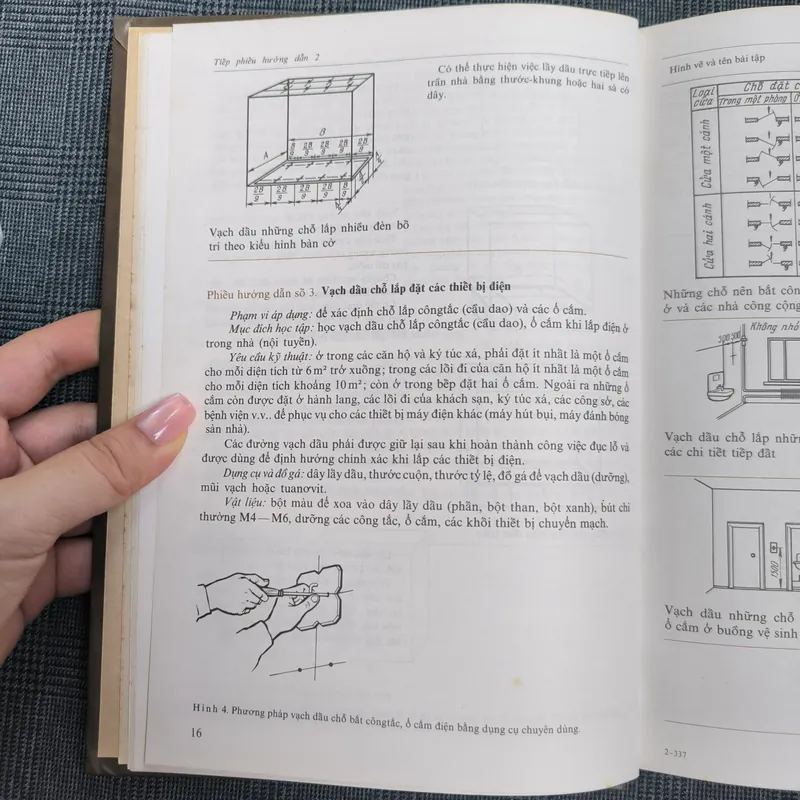 Tiếp phiếu hướng dẫn 2
Có thể thực hiện việc lấy dấu trực tiếp lên
trần nhà bằng thước-khung hoặc hai sà có
dây.
A
B
B/9 2B/9 2B/9 2B/9 2B/9
2B/9 2B/9 2B/9 2B/9 B/9
Vạch dấu những chỗ lắp nhiều đèn bố
trí theo kiểu hình bàn cờ
Phiếu hướng dẫn số 3. Vạch dấu chỗ lắp đặt các thiết bị điện
Phạm vi áp dụng: để xác định chỗ lắp côngtắc (cầu dao) và các ổ cắm.
Mục đích học tập: học vạch dấu chỗ lắp côngtắc (cầu dao), ổ cắm khi lắp điện ở
trong nhà (nội tuyến).
Yêu cầu kỹ thuật: ở trong các căn hộ và ký túc xá, phải đặt ít nhất là một ổ cắm
cho mỗi diện tích từ 6 m² trở xuống; trong các lối đi của căn hộ ít nhất là một ổ cắm
cho mỗi diện tích khoảng 10 m²; còn ở trong bếp đặt hai ổ cắm. Ngoài ra những ổ
cắm còn được đặt ở hành lang, các lối đi của khách sạn, ký túc xá, các công sở, các
bệnh viện v.v.. để phục vụ cho các thiết bị máy điện khác (máy hút bụi, máy đánh bóng
sàn nhà).
Các đường vạch dấu phải được giữ lại sau khi hoàn thành công việc đục lỗ và
được dùng để định hướng chính xác khi lắp các thiết bị điện.
Dụng cụ và đồ gá: dây lấy dấu, thước cuộn, thước tỷ lệ, đồ gá để vạch dấu (dưỡng),
mũi vạch hoặc tuanơvit.
Vật liệu: bột màu để xoa vào dây lấy dấu (phấn, bột than, bột xanh), bút chì
thường M4—M6, dưỡng các công tắc, ổ cắm, các khối thiết bị chuyển mạch.
Hình 4. Phương pháp vạch dấu chỗ bắt côngtắc, ổ cắm điện bằng dụng cụ chuyên dùng.
16
Hình vẽ và tên bài tập
Loại cửa
Chỗ đặt c
Trong một phòng
Cửa một cánh
Cửa hai cánh
Những chỗ nên bắt côn
ở và các nhà công cộng
Không nhỏ
500 500
Vạch dấu chỗ lắp nhữ
các chi tiết tiếp đất
1500
Vạch dấu những chỗ
ổ cắm ở buồng vệ sinh
2-337